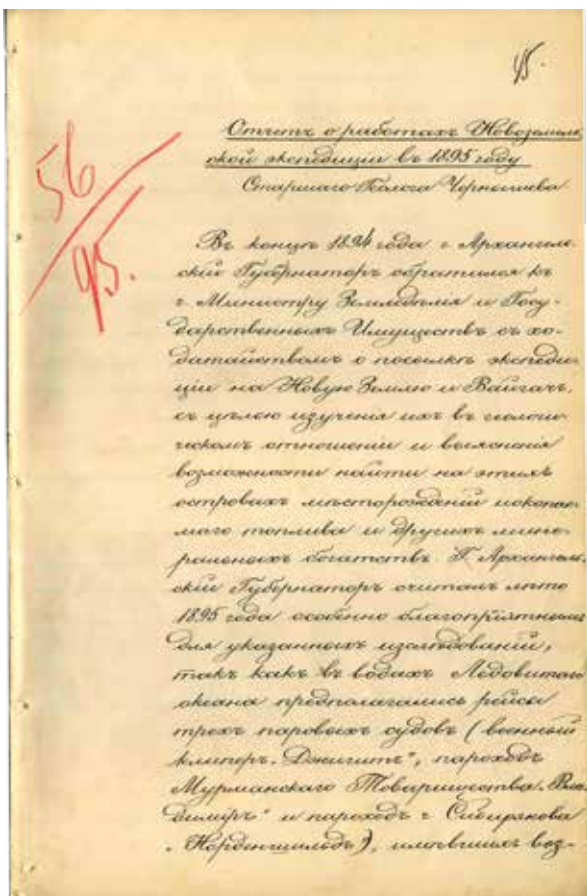 45.
56
95.
Отчетъ о работахъ Новоземель-
ской экспедиціи въ 1895 году
Старшаго Геолога Чернышева
Въ концѣ 1894 года г. Архангель-
скій Губернаторъ обратился къ
г. Министру Земледѣлія и Госу-
дарственныхъ Имуществъ съ хо-
датайствомъ о посылкѣ экспеди-
ціи на Новую Землю и Вайгачъ,
съ цѣлью изученія ихъ въ геологи-
ческомъ отношеніи и выясненія
возможности найти на этихъ
островахъ мѣсторожденій ископае-
маго топлива и другихъ мине-
ральныхъ богатствъ. Г. Архангель-
скій Губернаторъ считалъ лѣто
1895 года особенно благопріятнымъ
для указанныхъ изслѣдованій,
такъ какъ въ водахъ Ледовитаго
океана предполагались рейсы
трехъ паровыхъ судовъ (военный
клиперъ „Джигитъ", пароходъ
Мурманскаго Товарищества „Вла-
диміръ" и пароходъ г. Сибирякова
„Норденшильдъ"), имѣвшихъ воз-